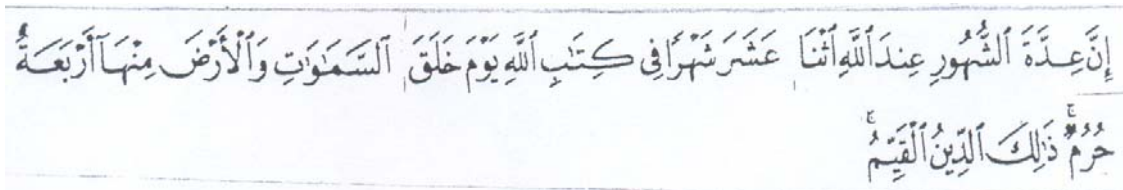 إِنَّ عِدَّةَ ٱلشُّهُورِ عِندَ ٱللَّهِ ٱثْنَا عَشَرَ شَهْرًا فِى كِتَٰبِ ٱللَّهِ يَوْمَ خَلَقَ ٱلسَّمَٰوَٰتِ وَٱلْأَرْضَ مِنْهَآ أَرْبَعَةٌ
حُرُمٌ ۚ ذَٰلِكَ ٱلدِّينُ ٱلْقَيِّمُ ۚ